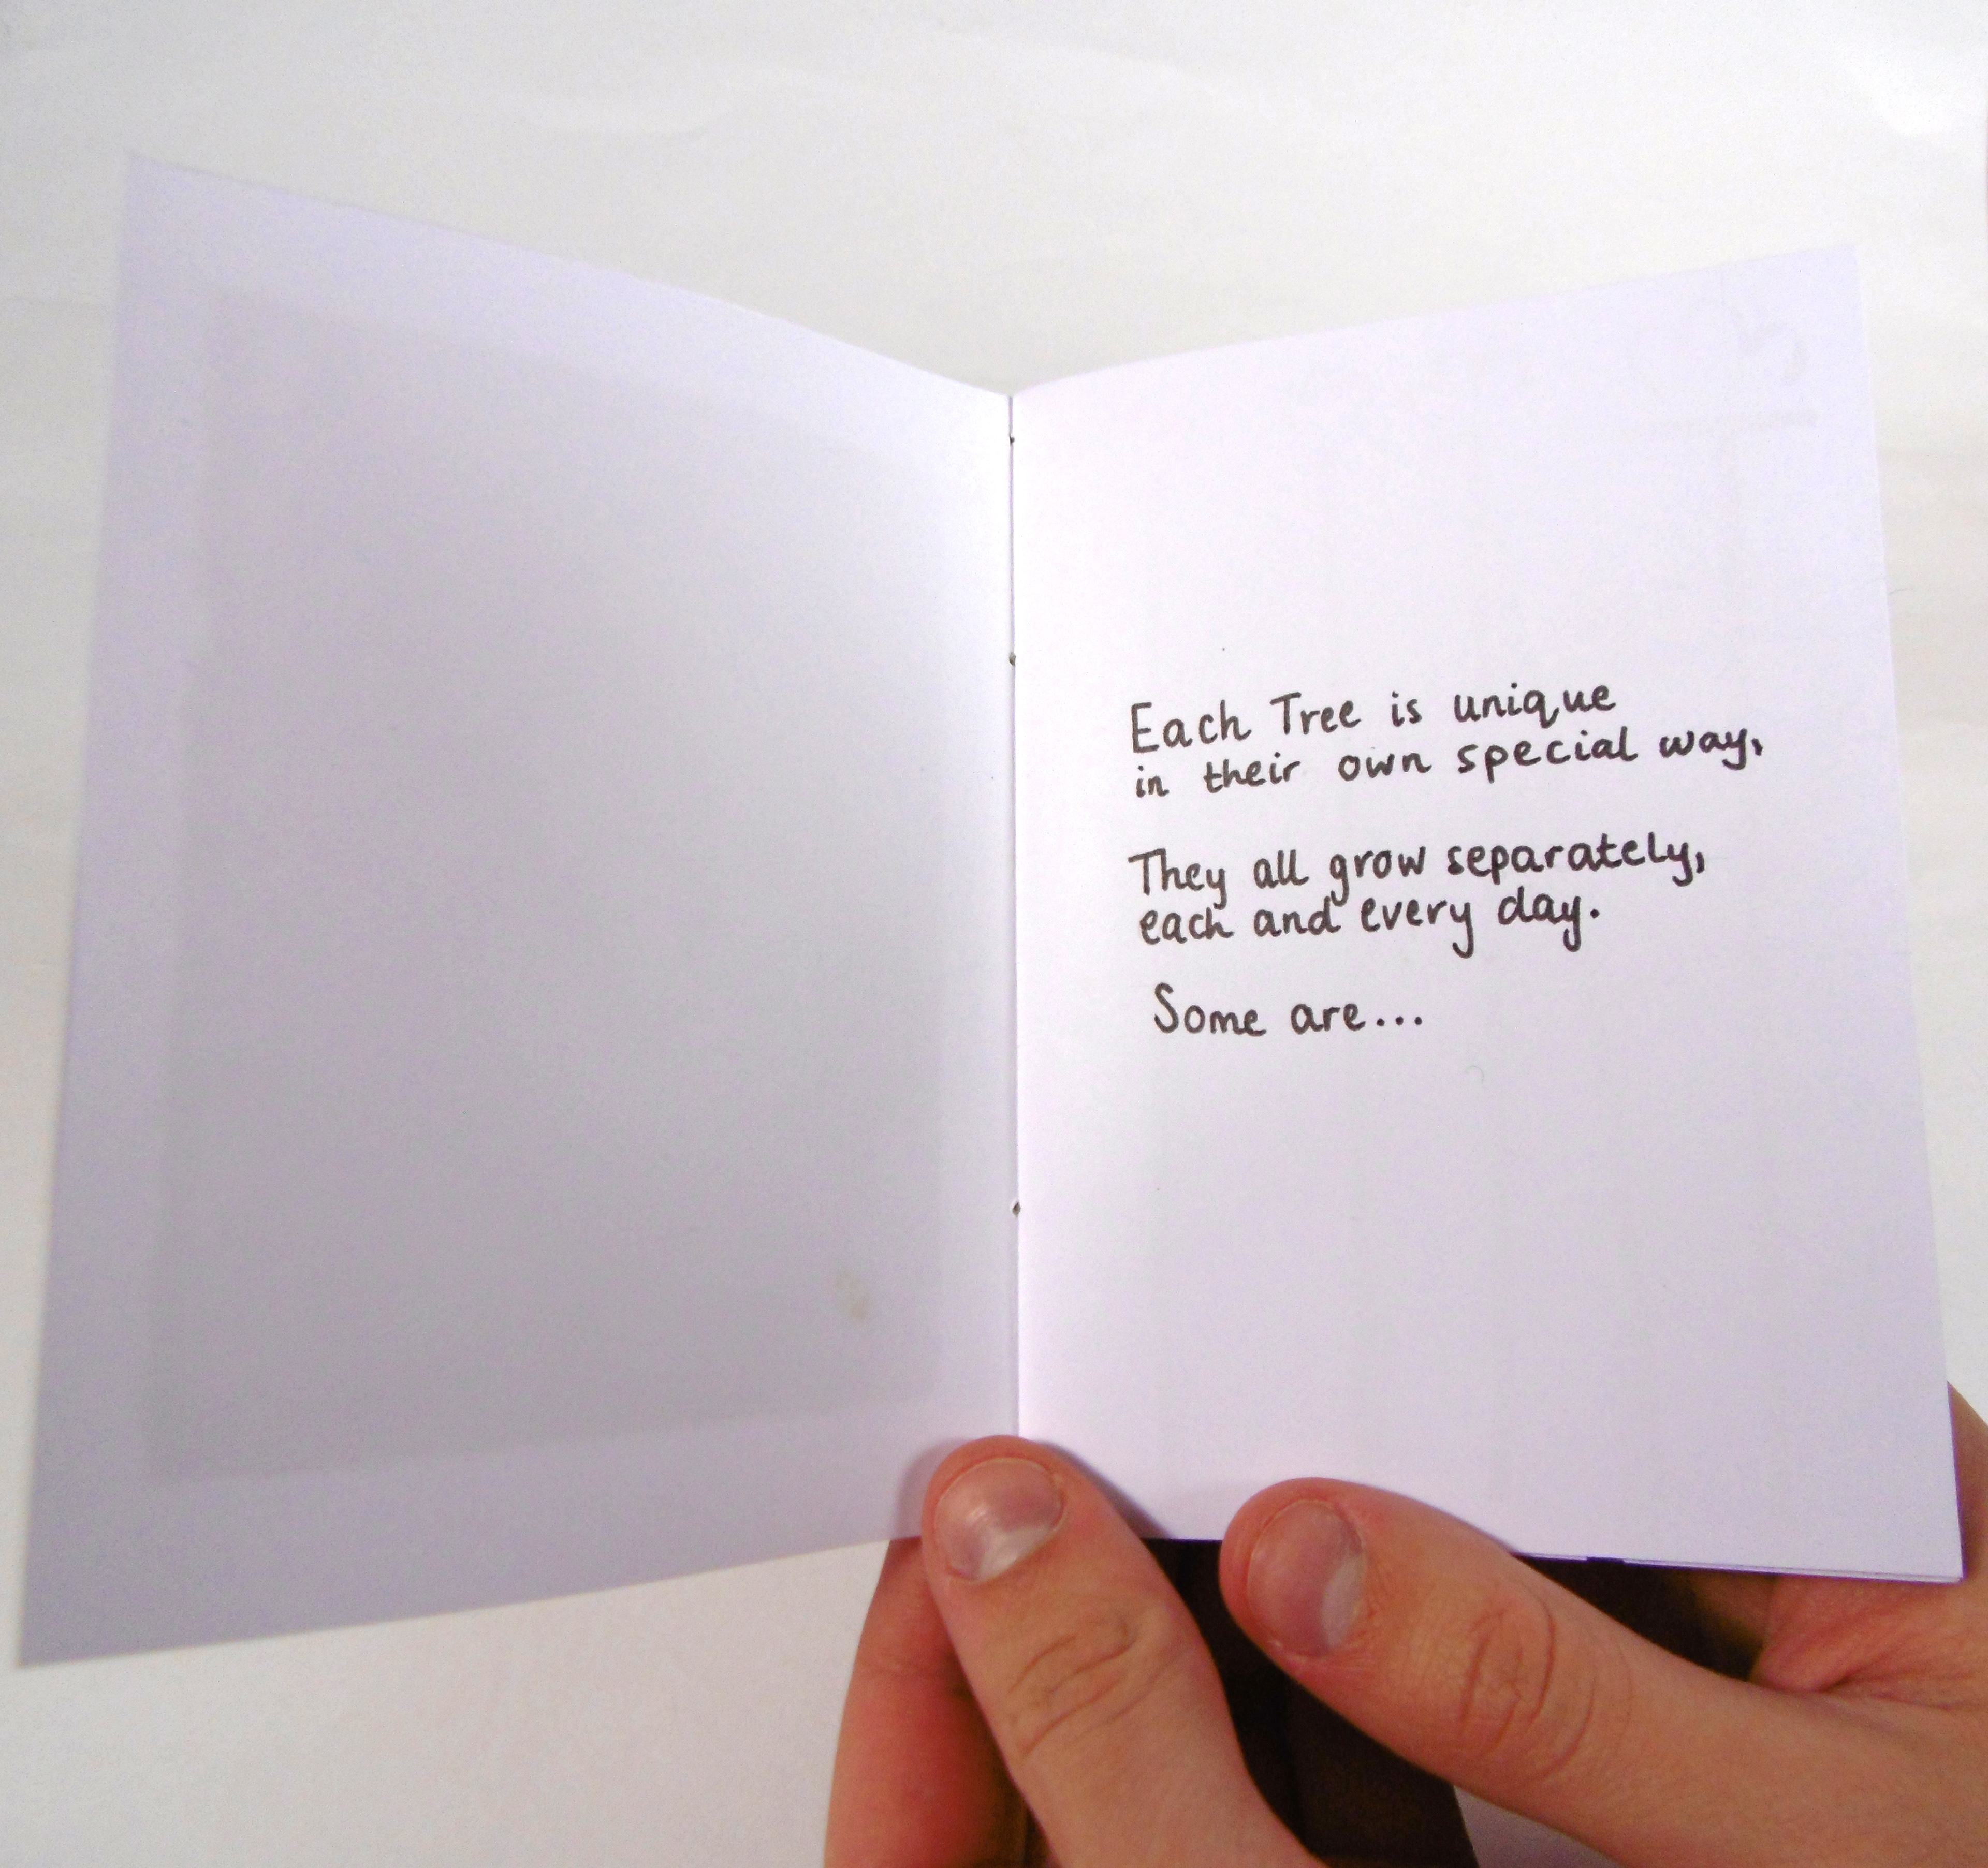 Each Tree is unique
in their own special way,
They all grow separately,
each and every day.
Some are...